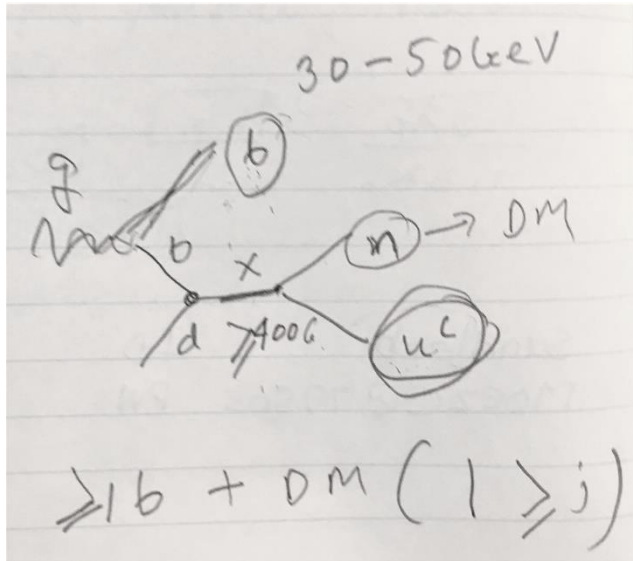 30-50GeV
g
b
b
X
n → DM
d ≥400G
u^c
≥1b + DM (1 ≥ j)